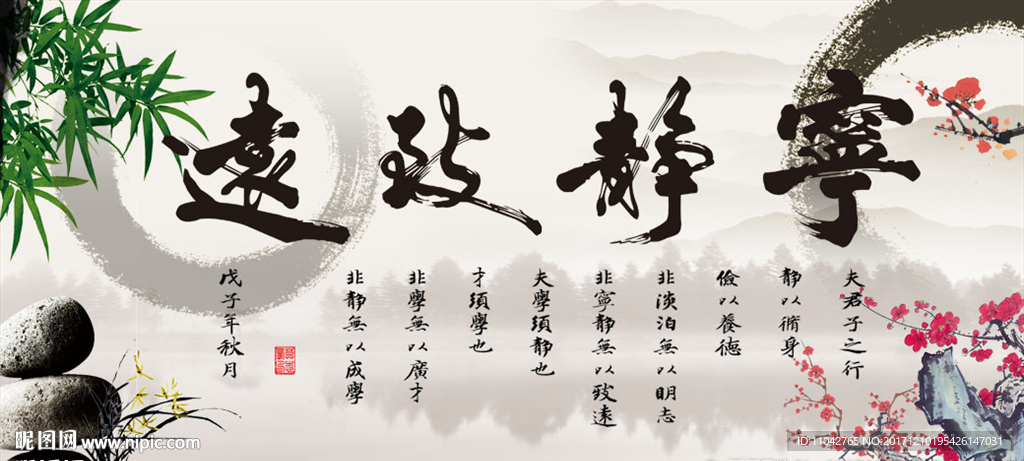 寧靜致遠
夫君子之行
静以脩身
儉以養德
非淡泊無以明志
非寧静無以致遠
夫學須静也
才須學也
非學無以廣才
非静無以成學
戊子年秋月
昵图网 www.nipic.com
ID:11042765 NO:20171210195426147031